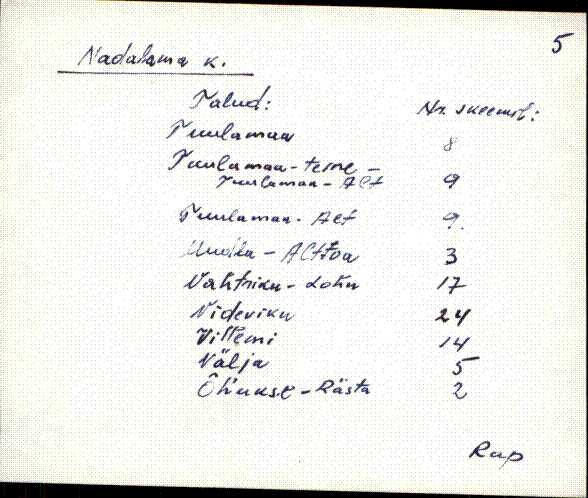 5
Nadalama k.
Talud: Nr. skeemil:
Tuulamaa 8
Tuulamaa-teine -
Tuulamaa-Alt 9
Tuulamaa-Alt 9.
Uudla-Alttoa 3
Vahtriku-Lohu 17
Videviku 24
Villemi 14
Välja 5
Õhukse-Rästa 2
Rap